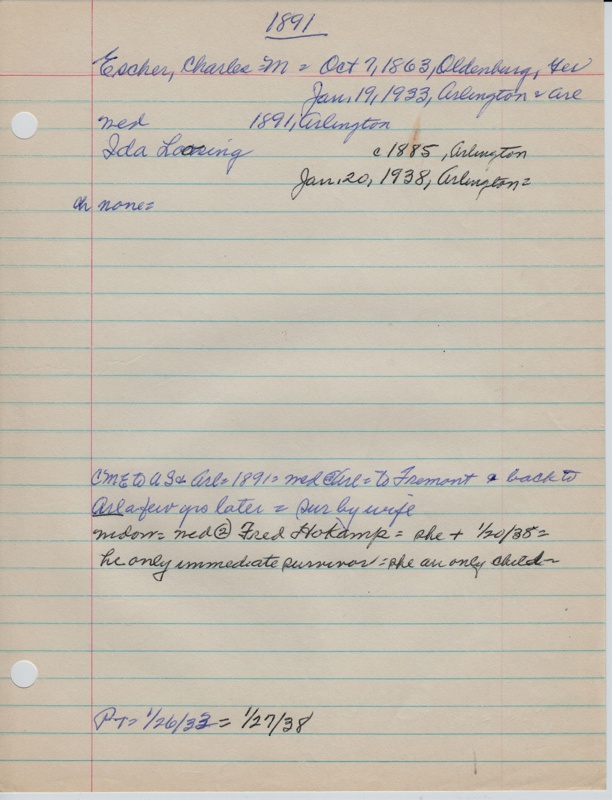 1891
Escher, Charles M = Oct 7, 1863, Oldenburg, Ger
Jan. 19, 1933, Arlington & Arl
med 1891, Arlington
Ida Loosing c 1885, Arlington
Jan. 20, 1938, Arlington =
ch none =
CME to US & Arl = 1891 = med @ Arl = to Fremont & back to
Arl a few yrs later = sur by wife
wdow = med ② Fred Hokamp = she + 1/20/38 =
he only immediate survivor = she an only child -
PT = 1/26/33 = 1/27/38